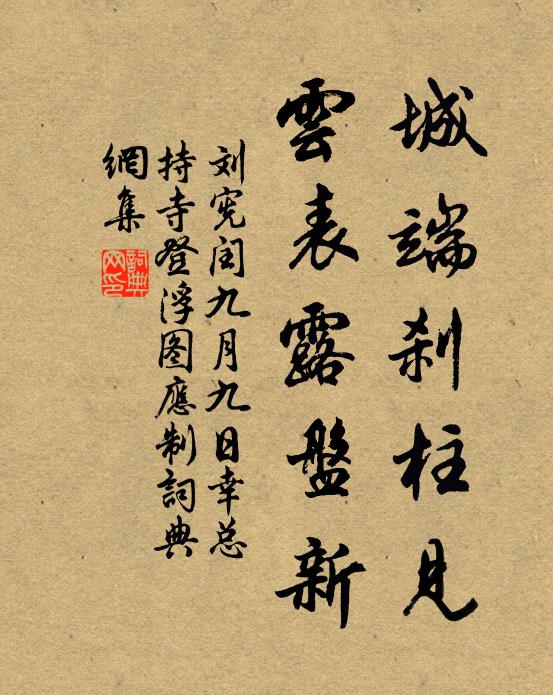 城端刹柱見
雲表露盤新
刘宪闰九月九日幸总
持寺登浮图應制詞典
網集
詞典网印